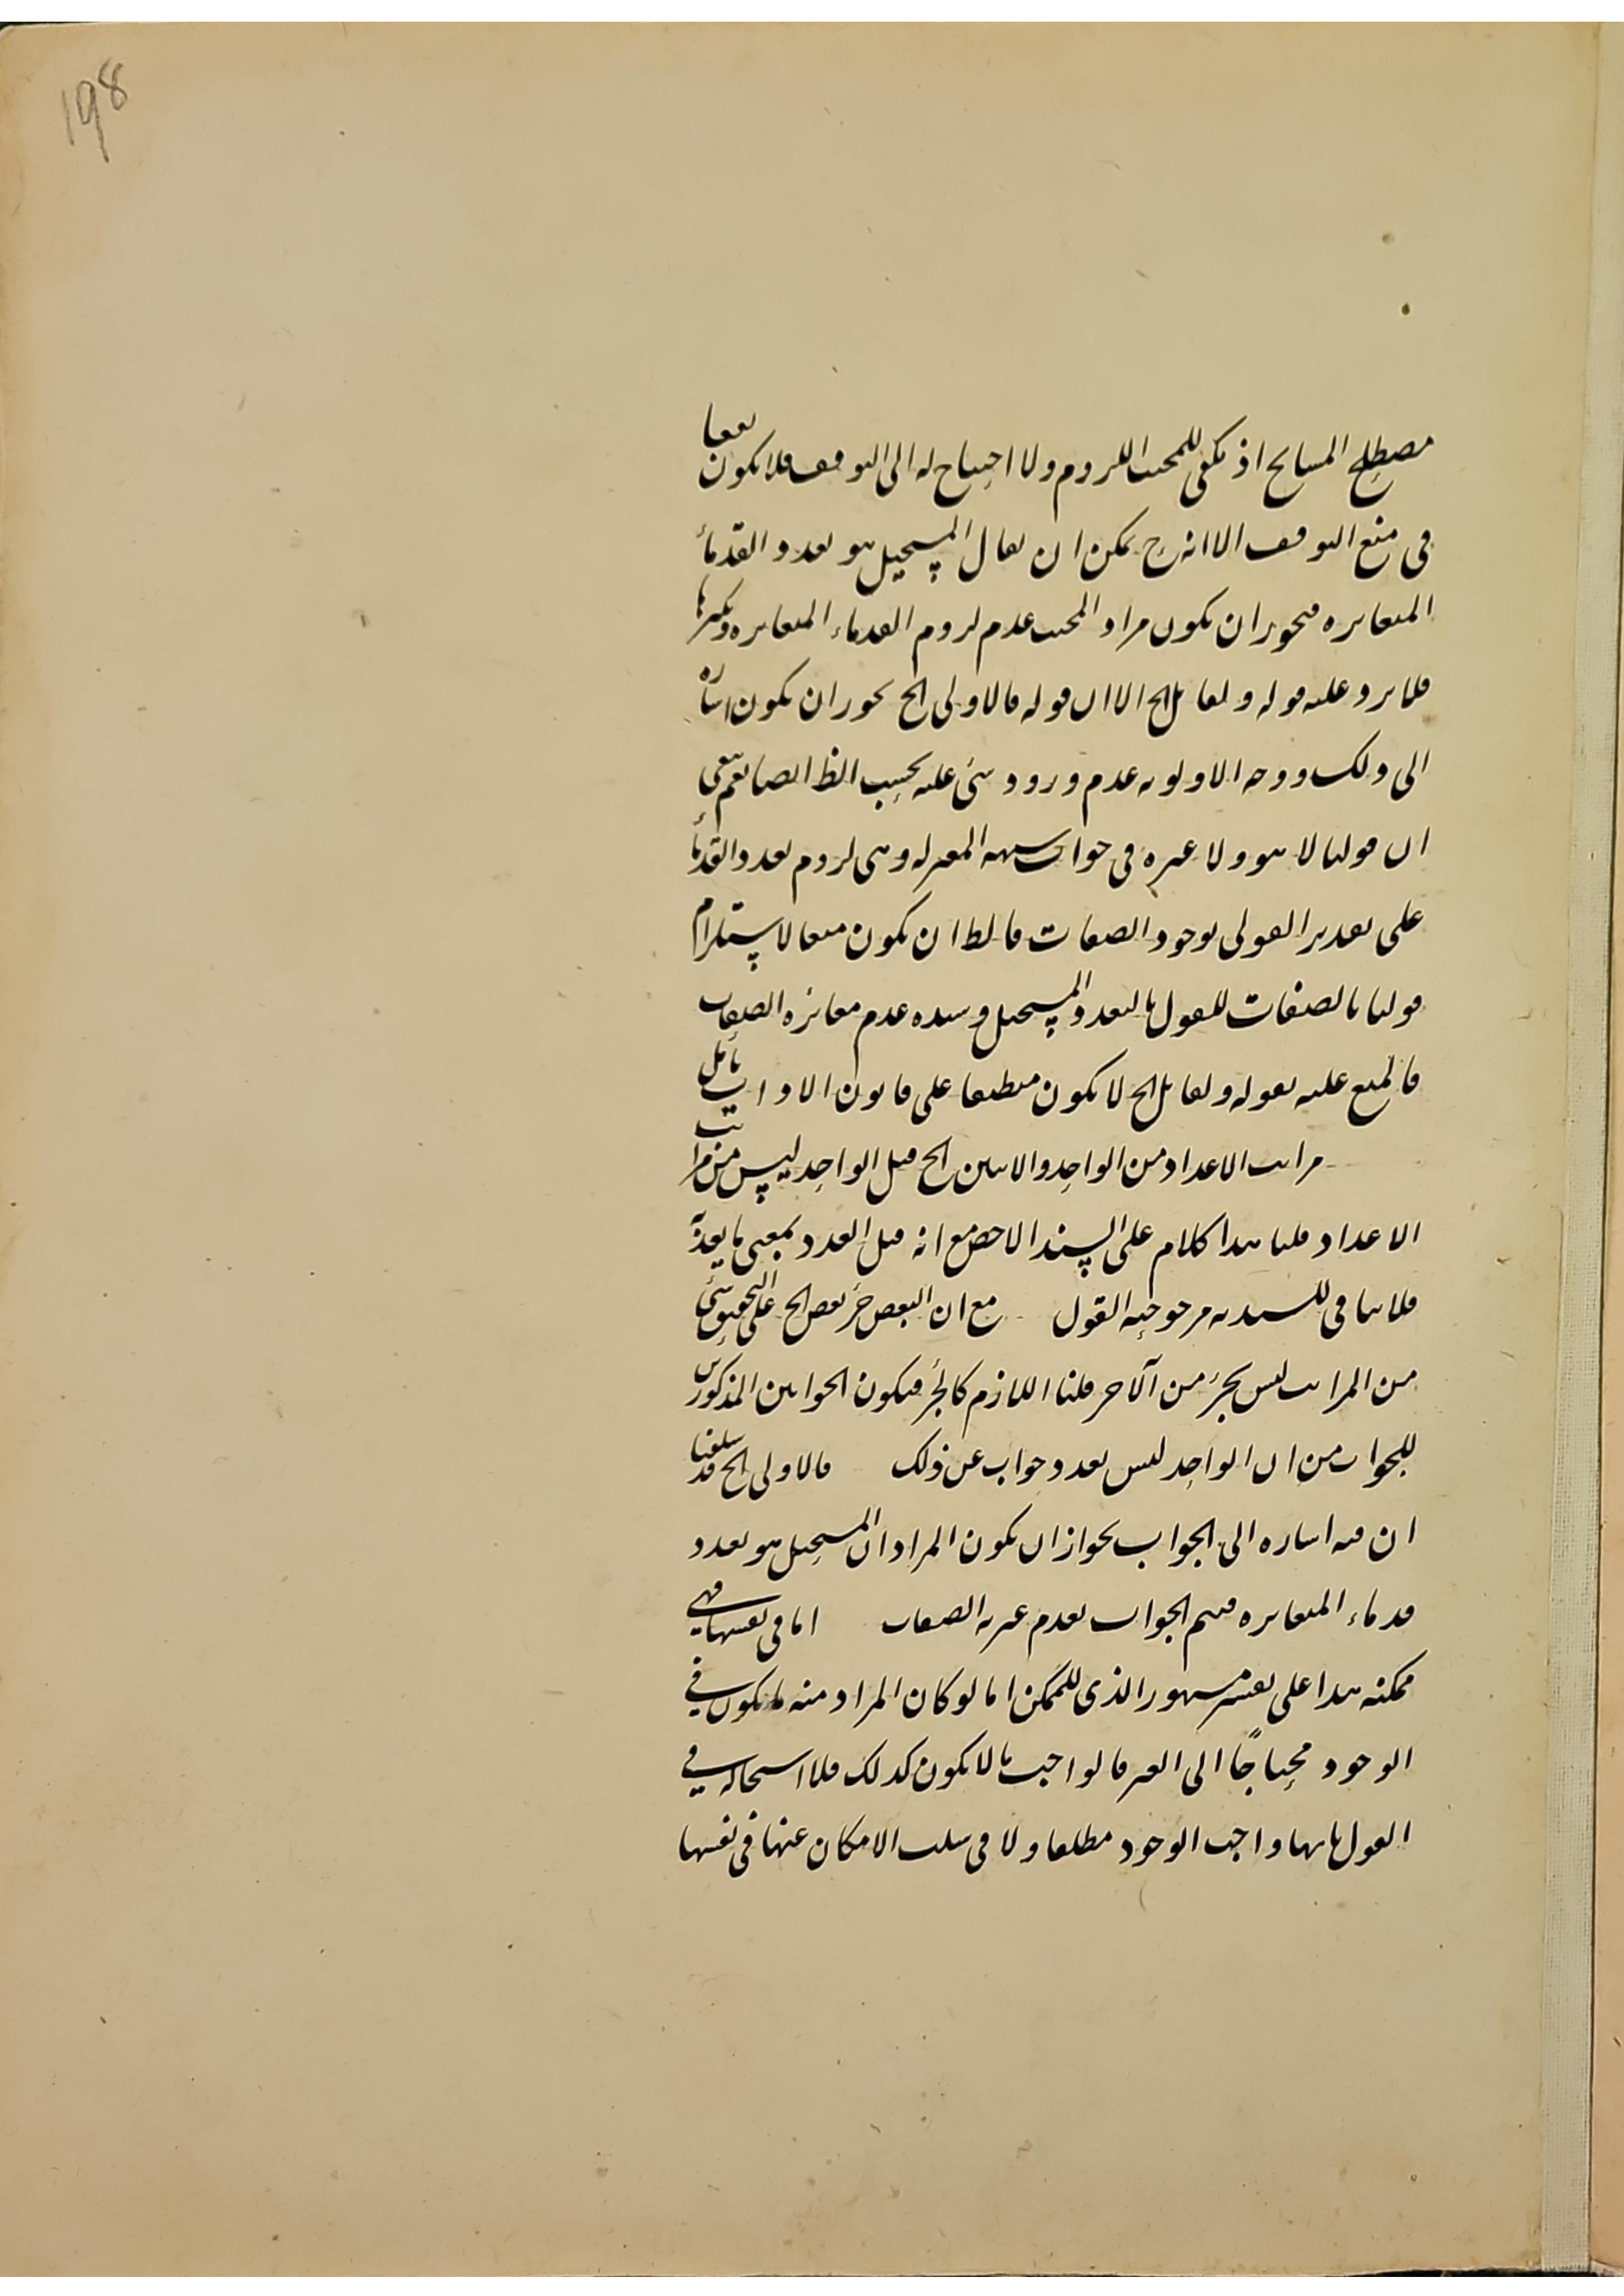 198
مصطلح المشايخ اذ يكفى للمجيب اللزوم ولا احتياج له الى التوقف فلا يكون نفعا
فى منع التوقف الا انه ح يمكن ان يقال المستحيل هو تعدد القدمأ
المتغايره فيجوز ان يكون مراد المجيب عدم لزوم القدماء المتغايره وتكثرها
فلا يرد عليه قوله ولقائل الخ الا ان قوله فالاولى الخ يجوز ان يكون اشاره
الى ذلك ووجه الاولويه عدم ورود شئ عليه بحسب الظ ايضا نعم بقى
ان قولنا لا هو ولا غيره فى جواب شبهه المعتزله وهى لزوم تعدد القدمأ
على تقدير القول بوجود الصفات فالظ ان يكون منعا لاستلزام
قولنا بالصفات للقول بالتعدد المستحيل وسنده عدم مغايره الصفات
فالمنع عليه بقوله ولقائل الخ لا يكون منطبقا على قانون الاداب تأمل
مراتب الاعداد من الواحد والاثنين الخ قيل الواحد ليس من مراتب
الاعداد قلنا هذا كلام على السند الاخص مع انه قيل العدد بمعنى ما يعدّ
فلا ينافى للسنديه مرجوحيه القول مع ان البعض جزء بعض الخ على التحقيق شئ
من المراتب ليس بجزء من الآخر قلنا اللازم كالجزء فيكون الجوابين المذكورين
للجواب من ان الواحد ليس بعدد جواب عن ذلك فالاولى الخ قد سلفنا
ان فيه اشاره الى الجواب بجواز ان يكون المراد ان المستحيل هو تعدد
قدماء المتغايره فيتم الجواب بعدم غيريه الصفات اما فى نفسها فهى
ممكنه هذا على تفسير مشهور الذى للممكن اما لو كان المراد منه ما يكون فى
الوجود محتاجًا الى الغير فالواجب ما لا يكون كذلك فلا استحاله فى
القول بانها واجب الوجود مطلقا ولا فى سلب الامكان عنها فى نفسها